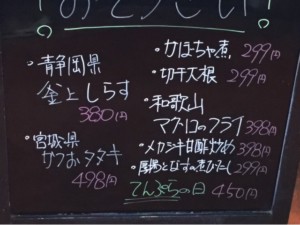 おそうざい
・静岡県
釜上しらす
380円
・宮城県
カツおタタキ
498円
・かぼちゃ煮 299円
・切干大根 299円
・和歌山
マグロのフライ 398円
・メカジキ甘酢炒め 398円
・となすの煮びたし 299円
てんぷらの日 450円